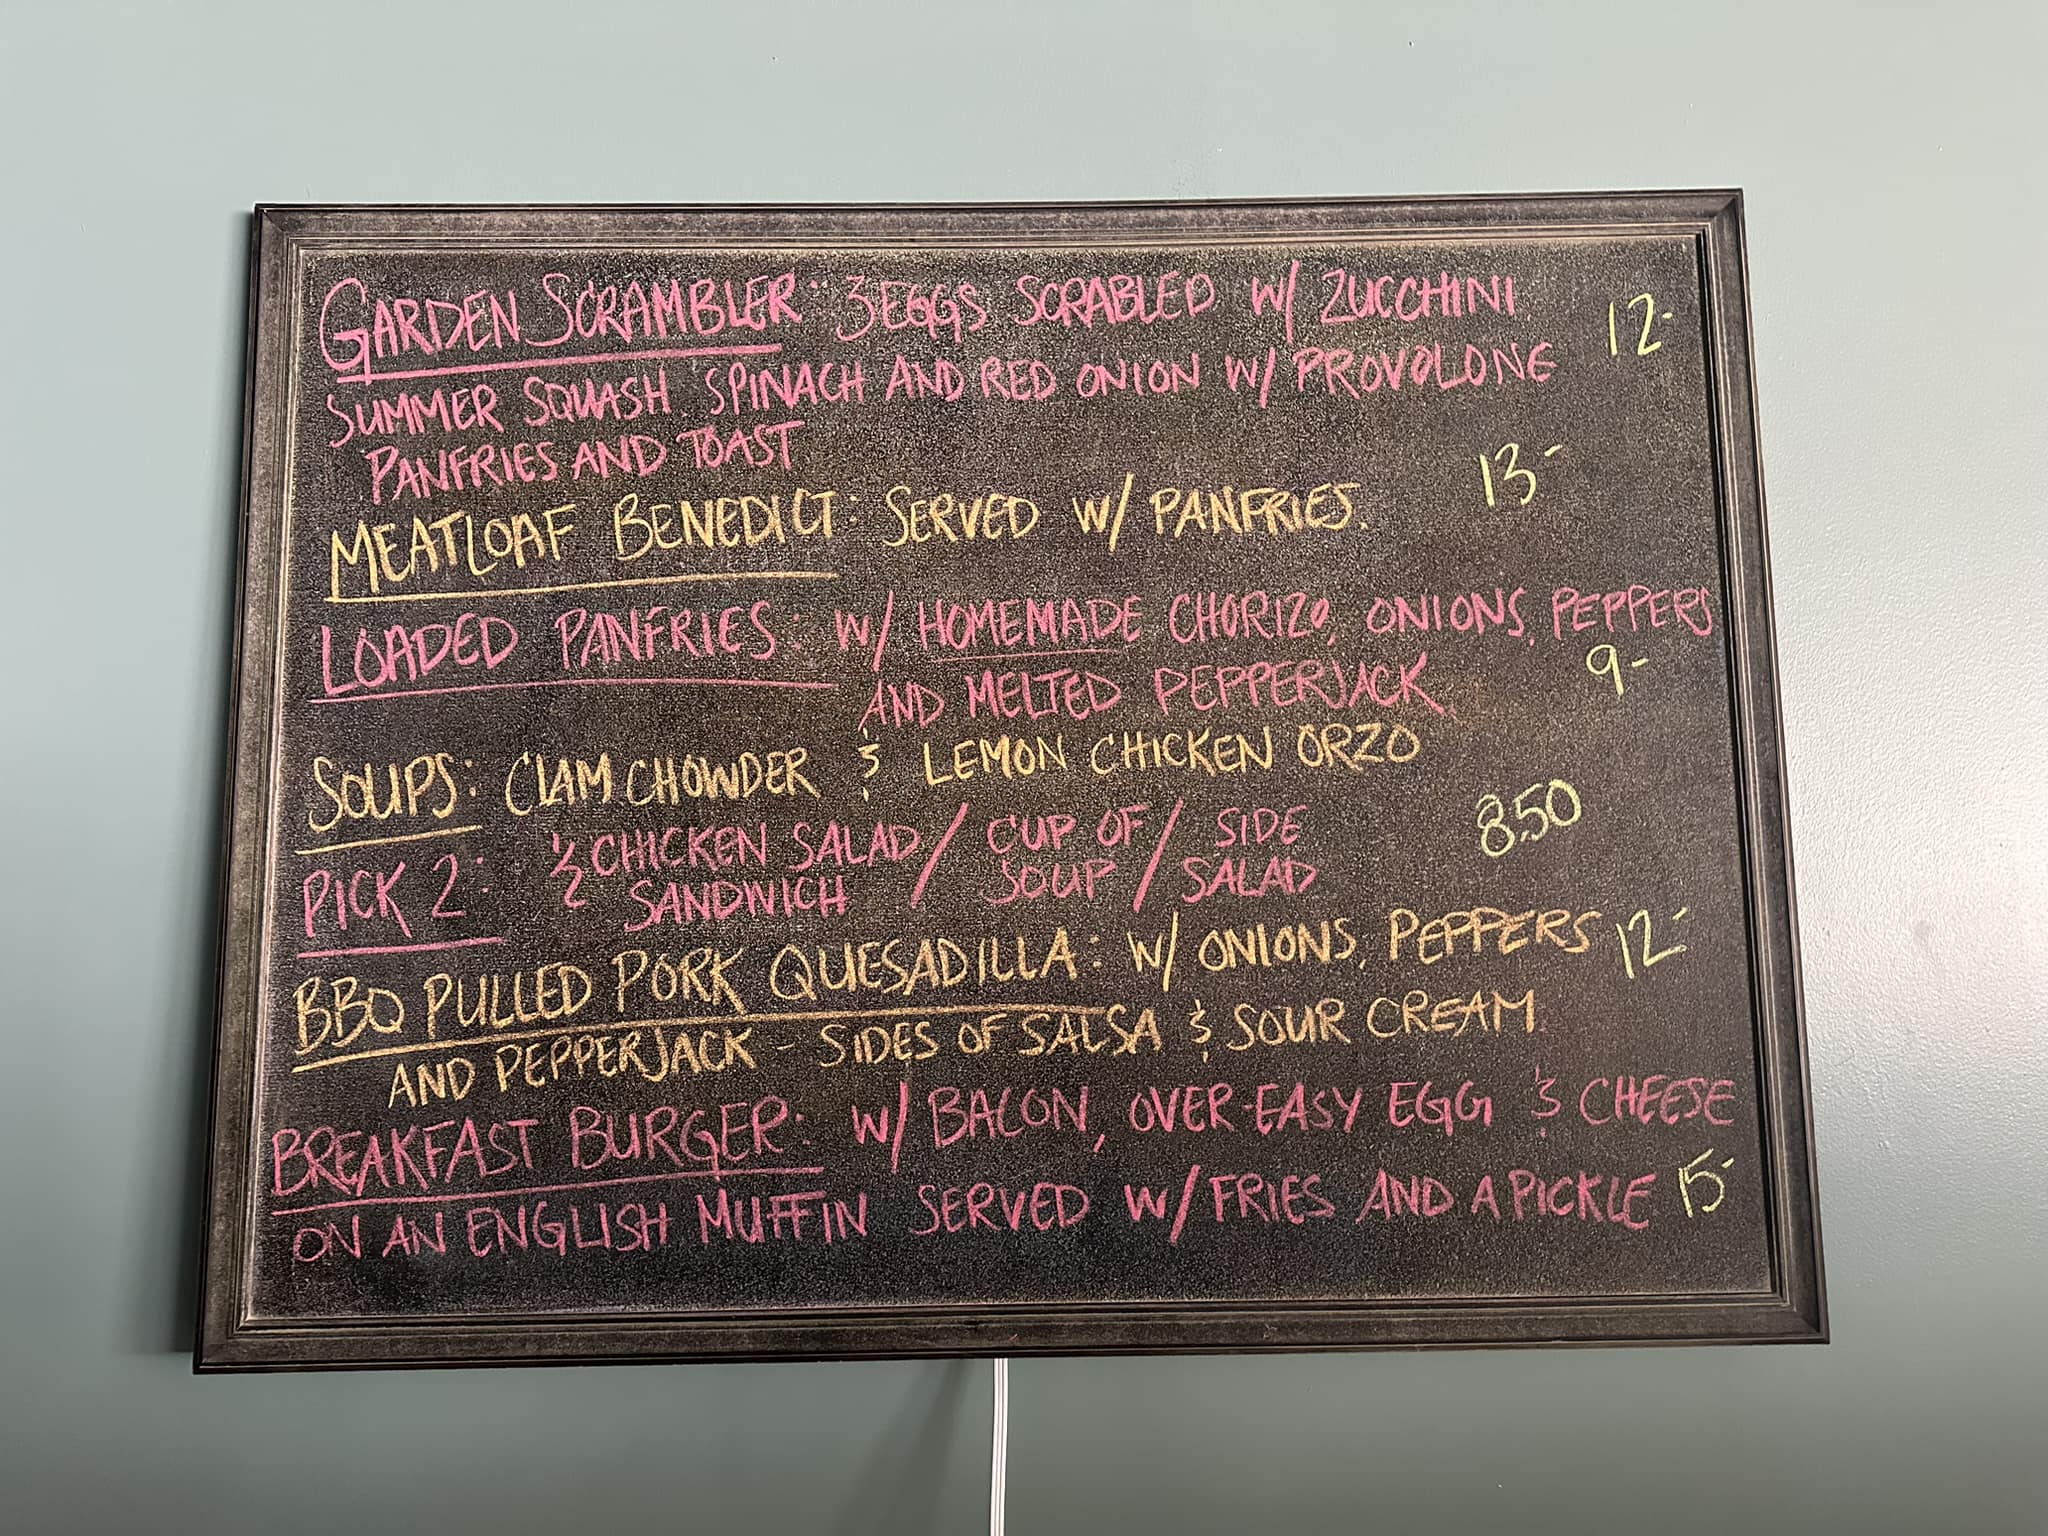 GARDEN SCRAMBLER: 3 EGGS SCRABLED W/ ZUCCHINI 12-
SUMMER SQUASH, SPINACH AND RED ONION W/ PROVOLONE
PANFRIES AND TOAST
MEATLOAF BENEDICT: SERVED W/ PANFRIES. 13-
LOADED PANFRIES: W/ HOMEMADE CHORIZO, ONIONS, PEPPERS
AND MELTED PEPPERJACK. 9-
SOUPS: CLAM CHOWDER & LEMON CHICKEN ORZO
PICK 2: 1/2 CHICKEN SALAD / CUP OF / SIDE 8.50
SANDWICH SOUP SALAD
BBQ PULLED PORK QUESADILLA: W/ ONIONS, PEPPERS 12-
AND PEPPERJACK - SIDES OF SALSA & SOUR CREAM
BREAKFAST BURGER: W/ BACON, OVER-EASY EGG & CHEESE
ON AN ENGLISH MUFFIN SERVED W/ FRIES AND A PICKLE 15-